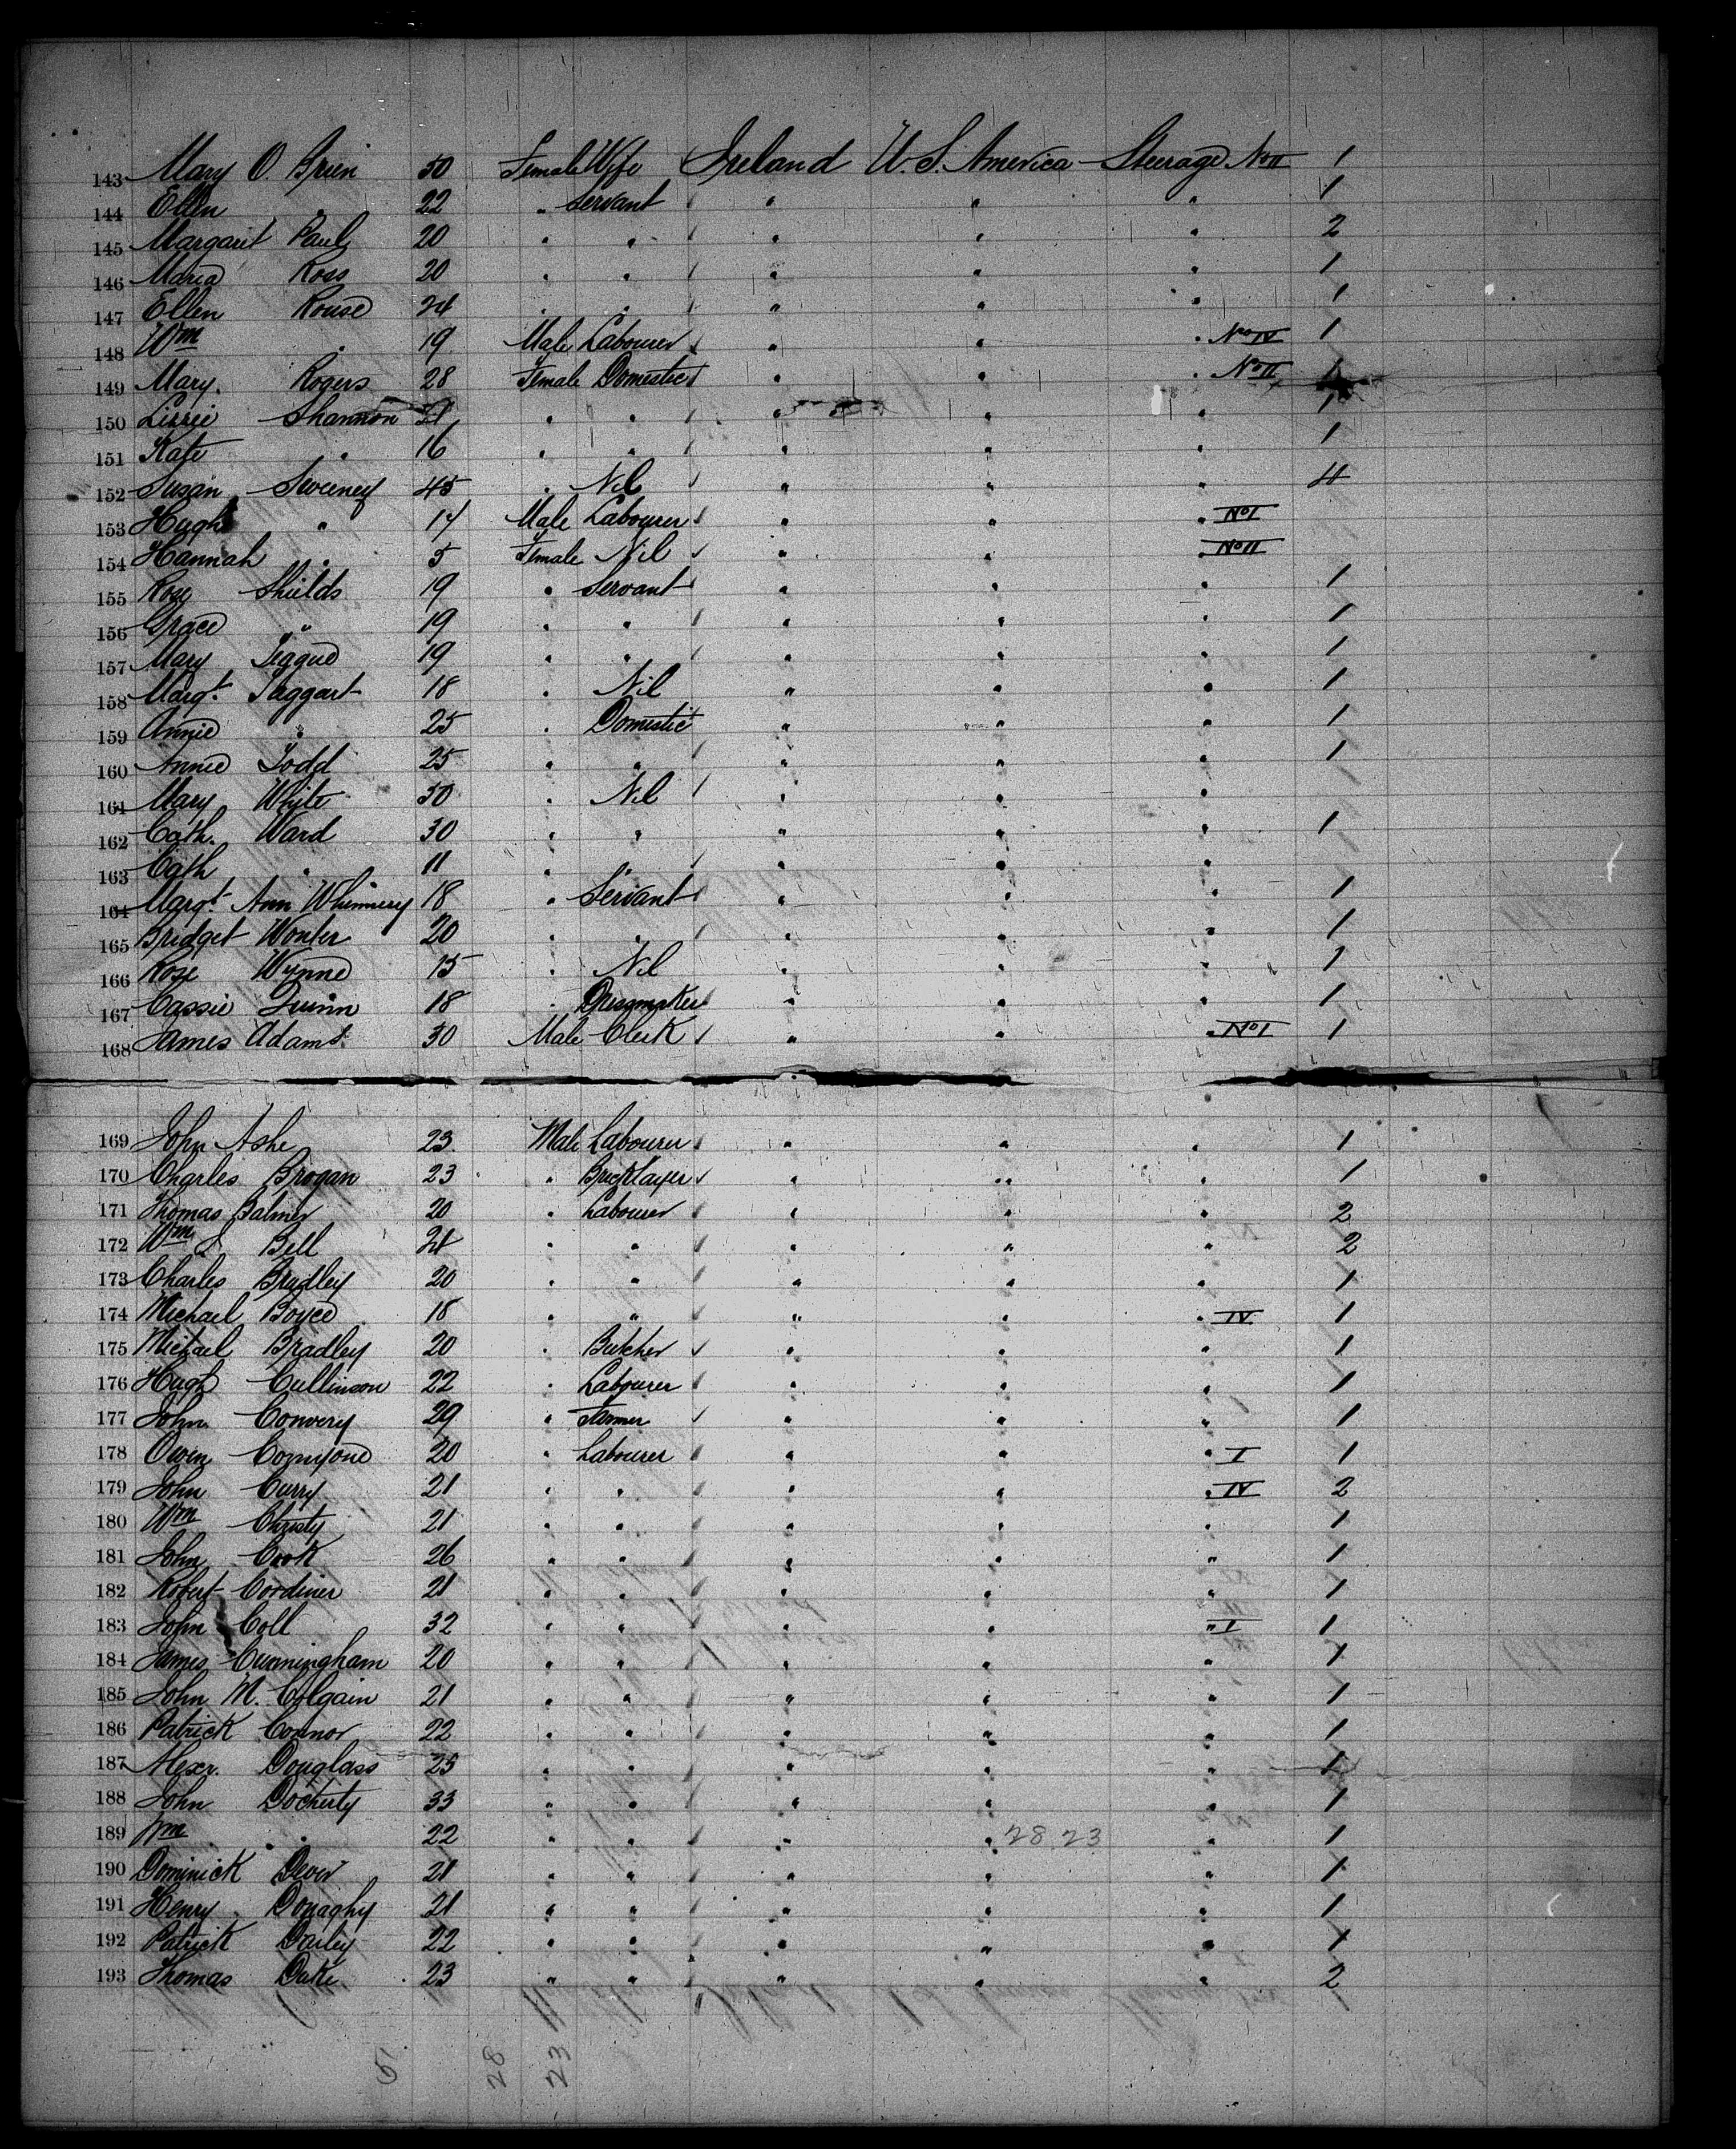 143 Mary O. Brien 50 Female Wife Ireland U.S. America Steerage No II 1
144 Ellen " 22 " Servant " " " 1
145 Margarit Paul 20 " " " " " 2
146 Maria Ross 20 " " " " " 1
147 Ellen Rouse 24 " " " " " 1
148 Wm " 19 Male Labourer " " " No IV 1
149 Mary Rogers 28 Female Domestic " " " No II 1
150 Lizzie Shannon 21 " " " " " 1
151 Kate " 16 " " " " " 1
152 Susan Sweeney 45 " Nil " " " 4
153 Hugh " 14 Male Labourer " " " No I
154 Hannah " 5 Female Nil " " " No II
155 Rose Shields 19 " Servant " " " 1
156 Grace " 19 " " " " " 1
157 Mary Teggue 19 " " " " " 1
158 Margt. Taggart 18 " Nil " " " 1
159 Annie " 25 " Domestic " " " 1
160 Annie Todd 25 " " " " " 1
161 Mary White 50 " Nil " " "
162 Cath. Ward 30 " " " " " 1
163 Cath " 11 " " " "
164 Margt. Ann Whinnery 18 " Servant " " " 1
165 Bridget Wonter 20 " " " " " 1
166 Rose Wynne 15 " Nil " " " 1
167 Cassie Quinn 18 " Dressmaker " " " 1
168 James Adams 30 Male Clerk " " " No I 1
169 John Ashe 23 Male Labourer " " " 1
170 Charles Brogan 23 " Bricklayer " " " 1
171 Thomas Balmer 20 " Labourer " " " 2
172 Wm J Bell 21 " " " " " 2
173 Charles Bradley 20 " " " " " 1
174 Michael Boyce 18 " " " " " IV 1
175 Michael Bradley 20 " Butcher " " " 1
176 Hugh Cullinson 22 " Labourer " " " 1
177 John Convery 29 " Farmer " " " 1
178 Owen Comyone 20 " Labourer " " " I 1
179 John Curry 21 " " " " " IV 2
180 Wm Christy 21 " " " " " 1
181 John Cook 26 " " " " " 1
182 Robert Cordiner 21 " " " " " 1
183 John Coll 32 " " " " " I 1
184 James Cunningham 20 " " " " " 1
185 John M. Colgain 21 " " " " " 1
186 Patrick Connor 22 " " " " " 1
187 Alexr. Douglass 25 " " " " " 1
188 John Docherty 33 " " " " " 1
189 Wm " 22 " " " " 28 23 " 1
190 Dominick Dever 21 " " " " " 1
191 Henry Donaghy 21 " " " " " 1
192 Patrick Dailey 22 " " " " " 1
193 Thomas Duke 23 " " " " " 2
28 23